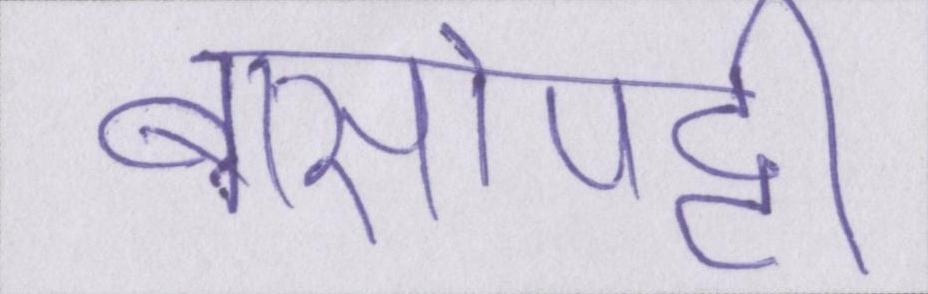 बासोपट्टी